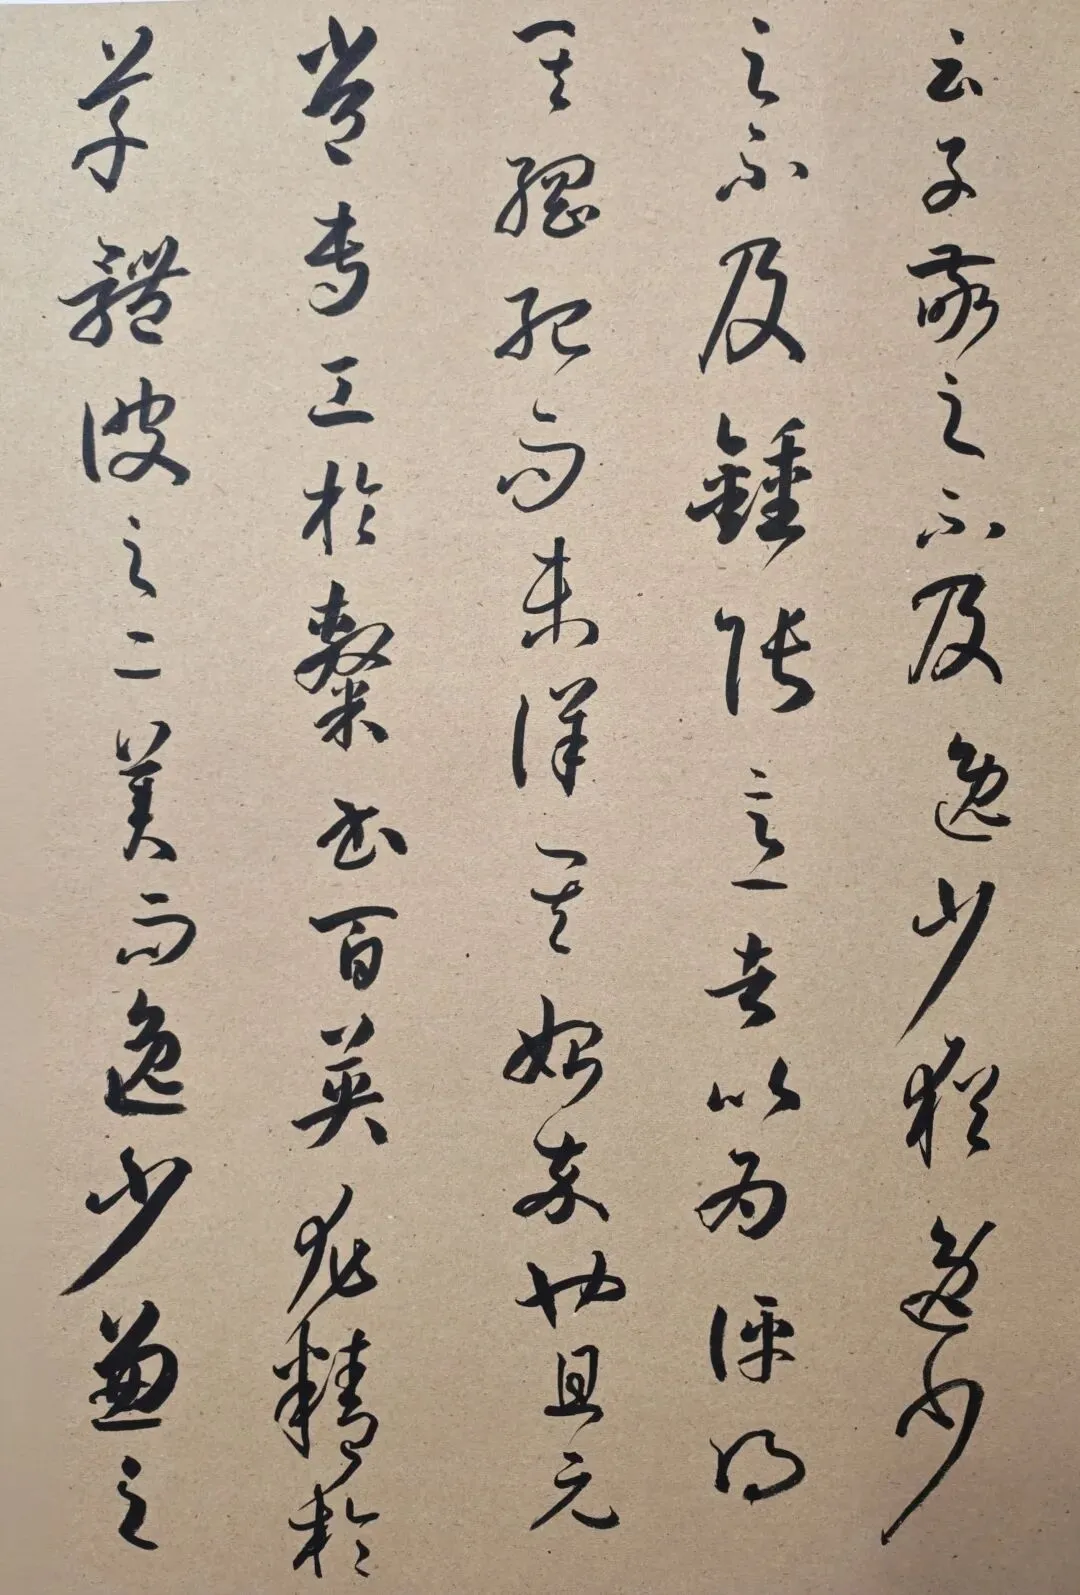 云子敬之不及逸少猶逸少
之不及鍾張意者以為評得
其綱紀而未詳其始卒也且元
常專工於隸書百英尤精於
草體彼之二美而逸少兼之